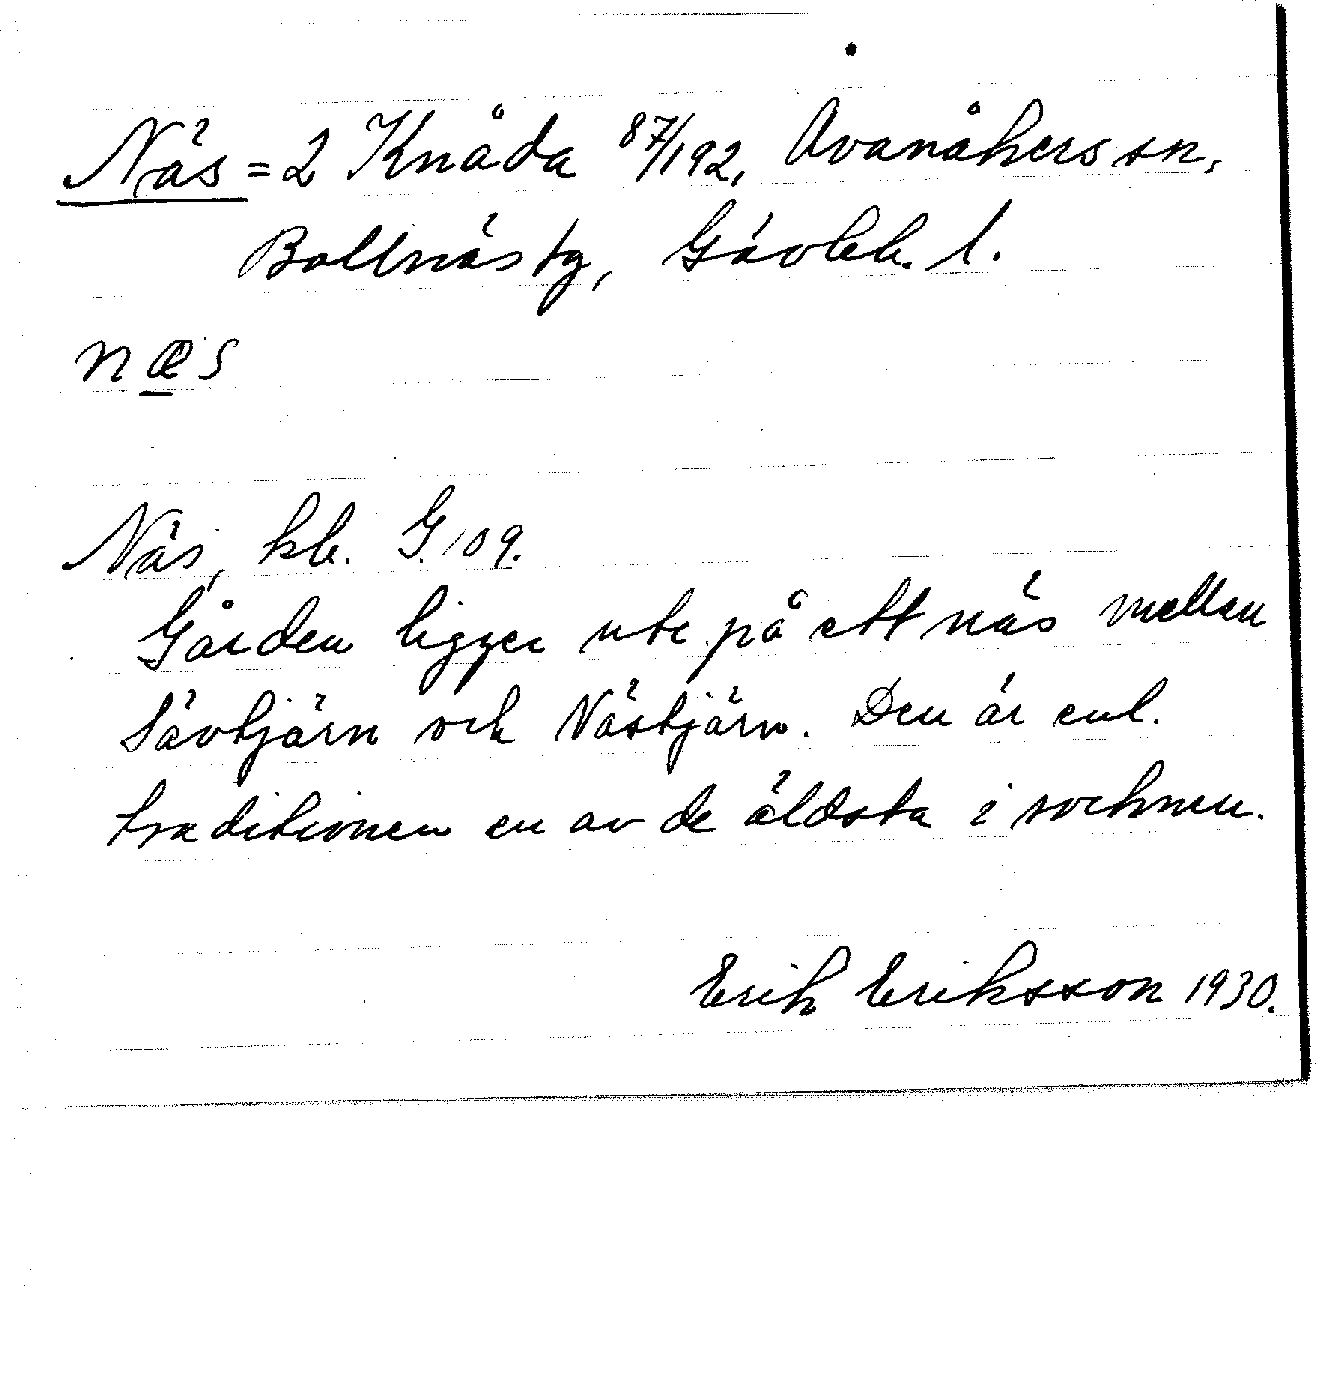 Näs = 2 Knåda 87/192, Ovanåkers sn,
Bollnäs tg, Gävleb. l.
næs
Näs, kb. G.109.
Gården ligger ute på ett näs mellan
Sävtjärn och Nästjärn. Den är enl.
traditionen en av de äldsta i socknen.
Erik Eriksson 1930.